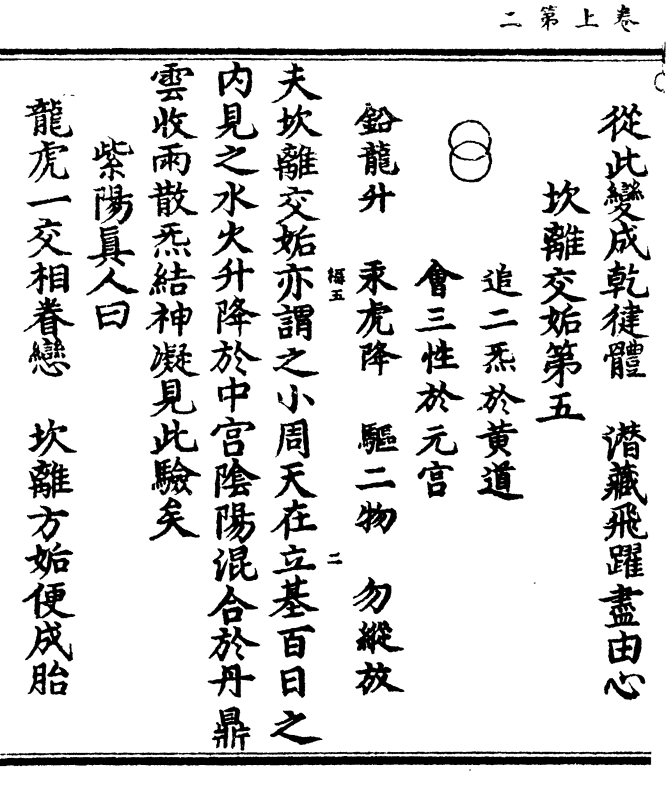 卷上第二
從此變成乾健體　潛藏飛躍盡由心
坎離交姤第五
追二炁於黄道
會三性於元宫
鉛龍升　汞虎降　驅二物　勿縱放
夫坎離交姤亦謂之小周天在立基百日之
内見之水火升降於中宫陰陽混合於丹鼎
雲收雨散炁結神凝見此驗矣
紫陽眞人曰
龍虎一交相眷戀　坎離方姤便成胎
二